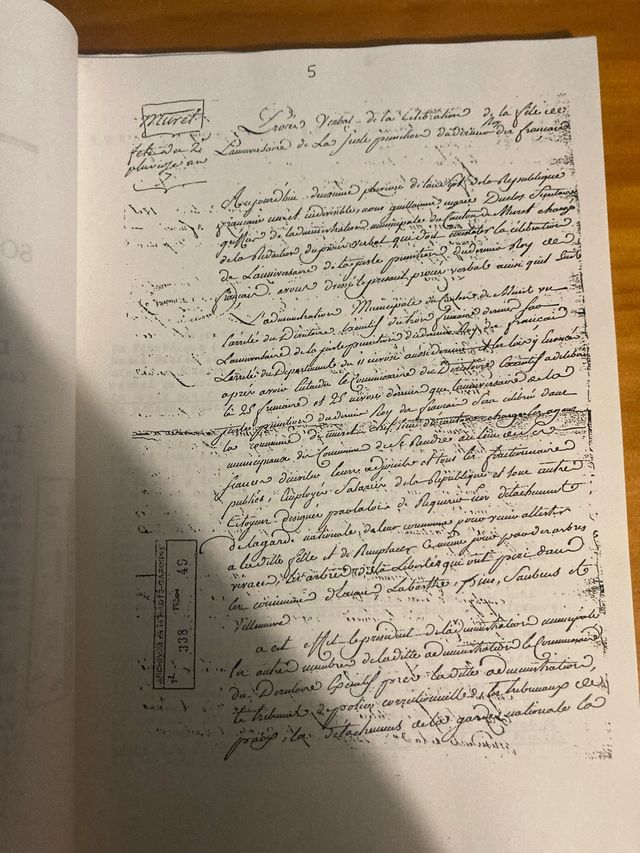 5
Muret
fete du 2
pluviose an
7
Procès Verbal de la Célébration de la fête de
L'anniversaire de La juste punition du dernier Roy des français
Aujourd'hui deuxième pluviose de l'an sept de la République
française une et indivisible, nous guillaume marie Duclos Secrétaire
greffier de l'administration municipale du Canton de Muret chargé
de la Rédaction du procès Verbal qui doit constater la célébration
de L'anniversaire de la juste punition du dernier Roy des
français, avons dressé le présent procès verbal ainsi qu'il suit
L'administration Municipale du Canton de Muret vu
l'arrêté du Directoire Exécutif du frimaire dernier sur
L'anniversaire de la juste punition du dernier Roy des français
L'arrêté du Département du 11 nivose aussi dernier
après avoir entendu le Commissaire du Directoire Exécutif a délibéré
le 25 frimaire et 25 nivose dernier que l'anniversaire de la
juste punition du dernier Roy des français sera célébré dans
la commune de muret chef lieu de canton chargé les agens
municipaux des Communes de se Rendre au lieu de
leurs adjoints et tous les fonctionnaires
publics, Employés Salariés de la République et tous autres
Citoyens désignés par la loi de Requérir les détachemens
de la garde nationale, de leur commune pour venir assister
a la ditte fette et de Remplacer Comme pour par des arbres
vivaces, les arbres de la Liberté qui ont péri dans
les communes d'Eaunes, Labarthe, pins, Saubens et
Villeneuve
a cet effet le président de l'administration municipale
les autres membres de la ditte administration le Commissaire
du Directoire Exécutif près la ditte administration,
le tribunal de police correctionnelle, les tribunaux de
paix, les détachemens de la garde nationale la
ARCHIVES DE LA HAUTE-GARONNE
N° 338 Folio 49